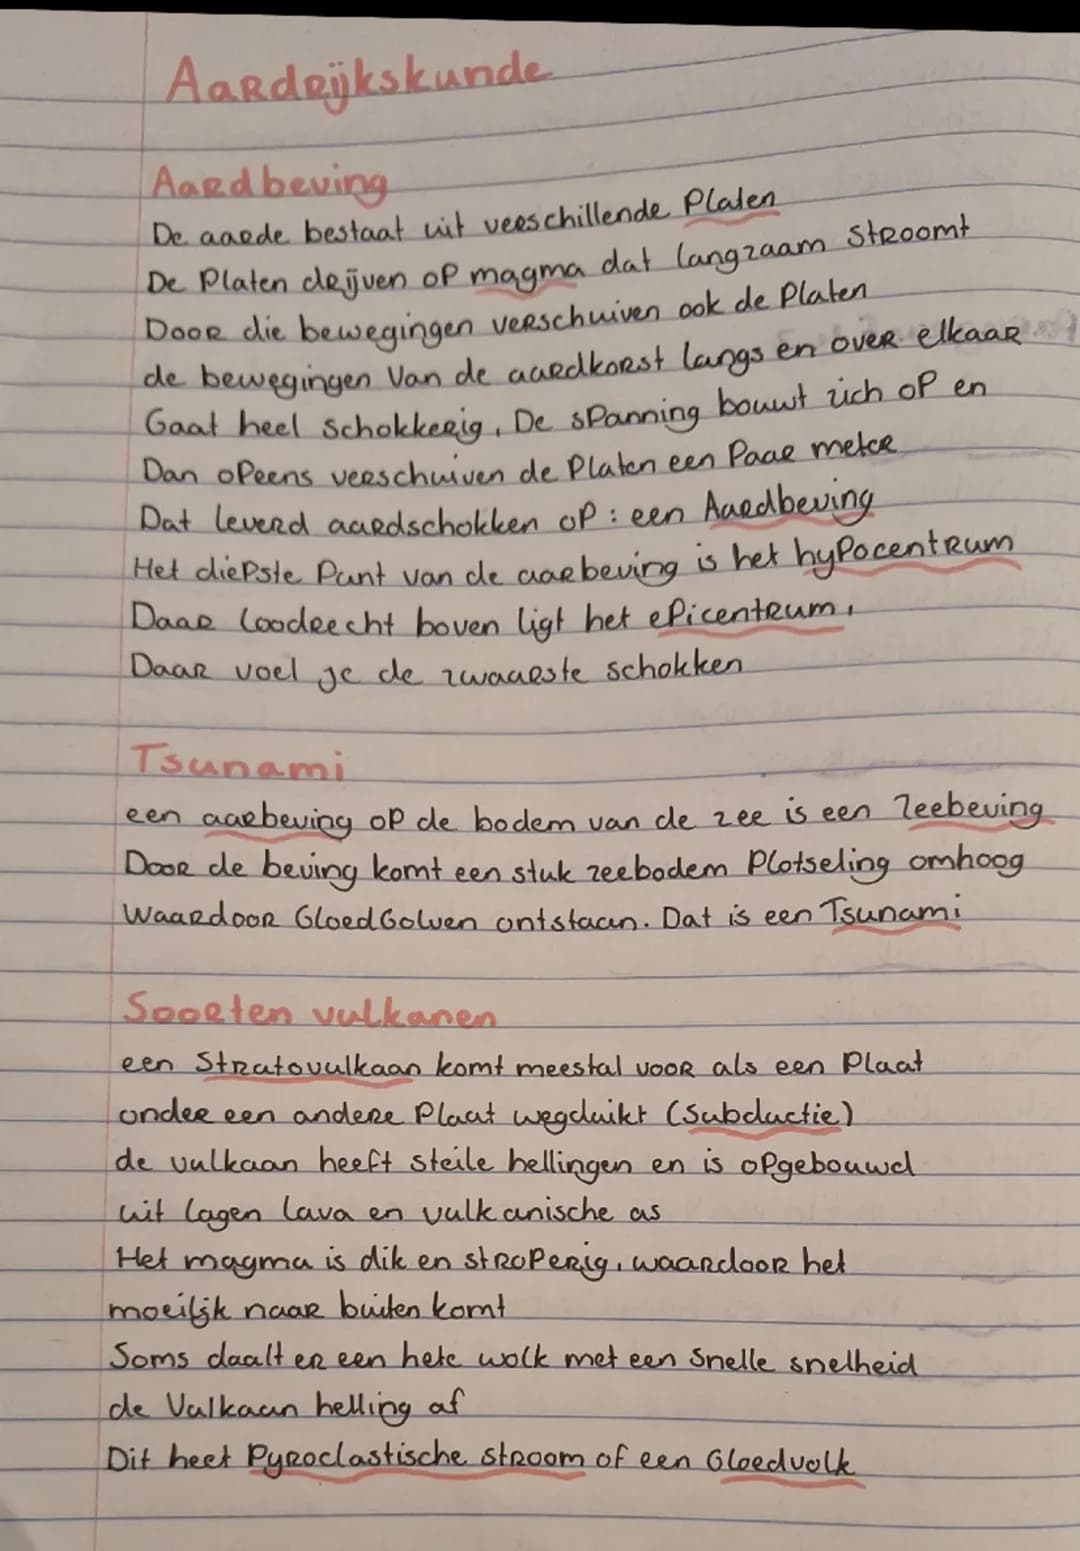 Aardrijkskunde
Aardbeving
De aarde bestaat uit verschillende Platen
De Platen drijven op magma dat langzaam stroomt
Door die bewegingen verschuiven ook de Platen
de bewegingen Van de aardkorst langs en over elkaar
Gaat heel schokkerig. De spanning bouwt zich op en
Dan opeens verschuiven de Platen een Paar meter
Dat leverd aardschokken op : een Aardbeving
Het diepste Punt van de aarbeving is het hypocentrum
Daar loodrecht boven ligt het epicentrum.
Daar voel je de zwaarste schokken
Tsunami
een aarbeving op de bodem van de zee is een Zeebeving
Door de beving komt een stuk zeebodem Plotseling omhoog
Waardoor GloedGolven ontstaan. Dat is een Tsunami
Soorten vulkanen
een Stratovulkaan komt meestal voor als een Plaat
onder een andere Plaat wegduikt (Subductie)
de vulkaan heeft steile hellingen en is opgebouwd
uit lagen lava en vulkanische as
Het magma is dik en stroperig, waardoor het
moeilijk naar buiten komt
Soms daalt er een hete wolk met een snelle snelheid
de Vulkaan helling af
Dit heet Pyroclastische stroom of een Gloedwolk